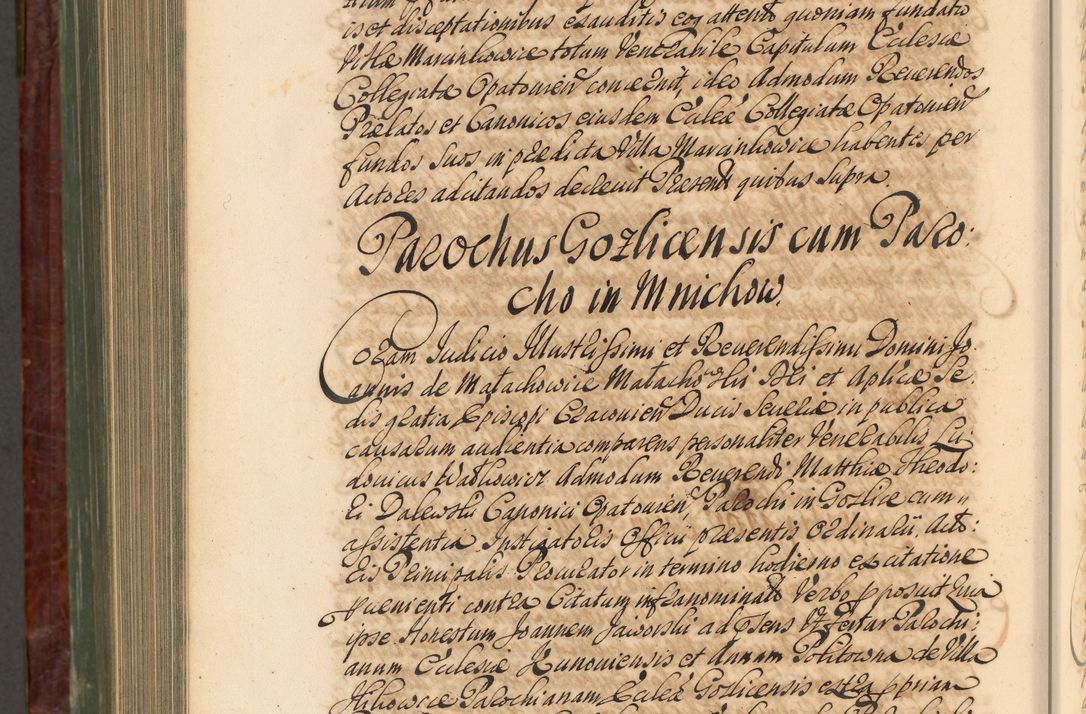 is et disceptationibus exauditis eoq̃ attento quoniam fundatio
Villæ Marcinkowice totum Venerabile Capitulum Ecclesiæ
Collegiatæ Opatovien̄ concernit, ideo Admodum Reuerendos
Prælatos et Canonicos eiusdem Ecclæ Collegiatæ Opatovien̄
fundos suos in prædicta Villa Marcinkowice habentes per
Actores adcitandos decreuit Præsent̄ quibus supra.
Parochus Gozlicensis cum Paro:
cho in Mnichow.
Coram Judicio Illustrissimi et Reuerendissimi Domini Jo
annis de Małachowice Małachowski Dei et Aplicæ Se:
dis gratia Episcopi Cracouien̄ Ducis Seueriæ in publica
causarum audientia comparens personaliter Venerabilis Lu
douicus Wałkowicz Admodum Reuerendi Matthiæ Theodo:
ri Dalewski Canonici Opatouien̄, Parochi in Gozlice cum
assistentia Instigatoris Officii præsentis ordinarii, Acto:
ris Principalis Procurator in termino hodierno ex citatione
prouenienti contra Citatum infranominato Verbo pposuit quia
ipse Honestum Joannem Jaworski ad Osens Vt fertur Parochi:
anum Ecclesiæ Kunouiensis et Annam Politowna de Villa
Parochianam Ecclæ Goslicensis extra ppriam